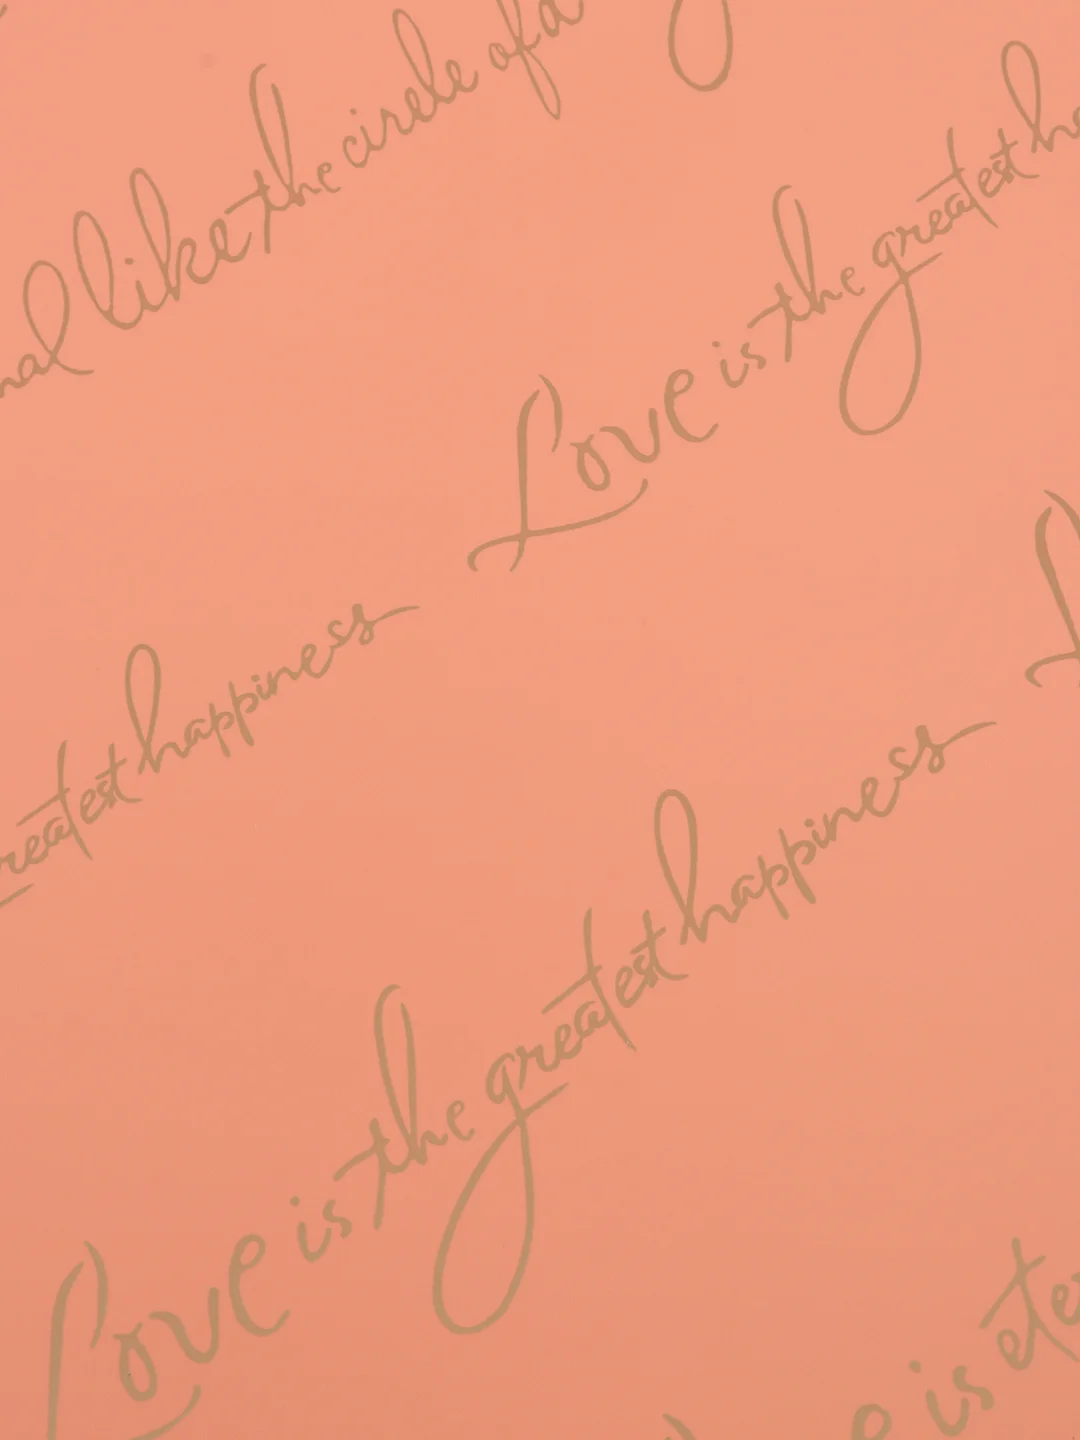 like the circle of a
Love is the greatest
greatest happiness
Love is the greatest happiness
is